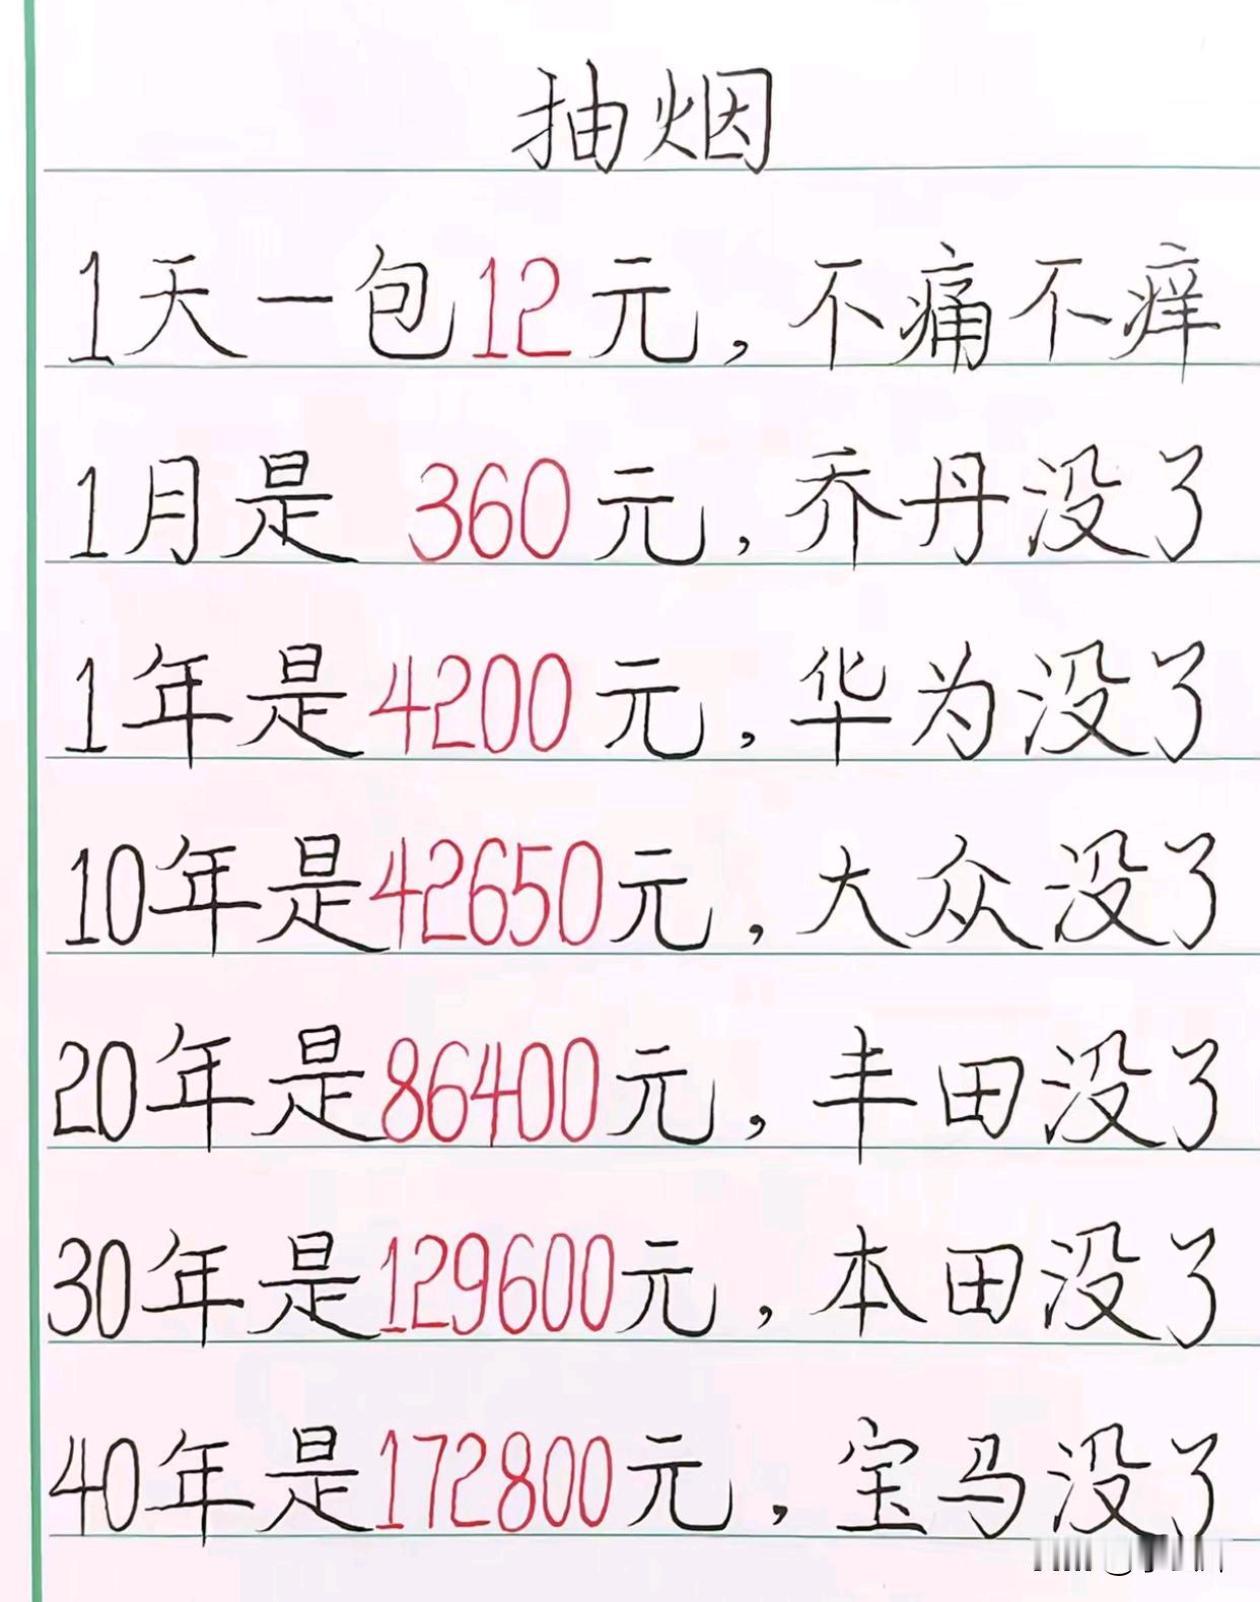 抽烟
1天一包12元，不痛不痒
1月是 360元，乔丹没了
1年是4200元，华为没了
10年是42650元，大众没了
20年是86400元，丰田没了
30年是129600元，本田没了
40年是172800元，宝马没了